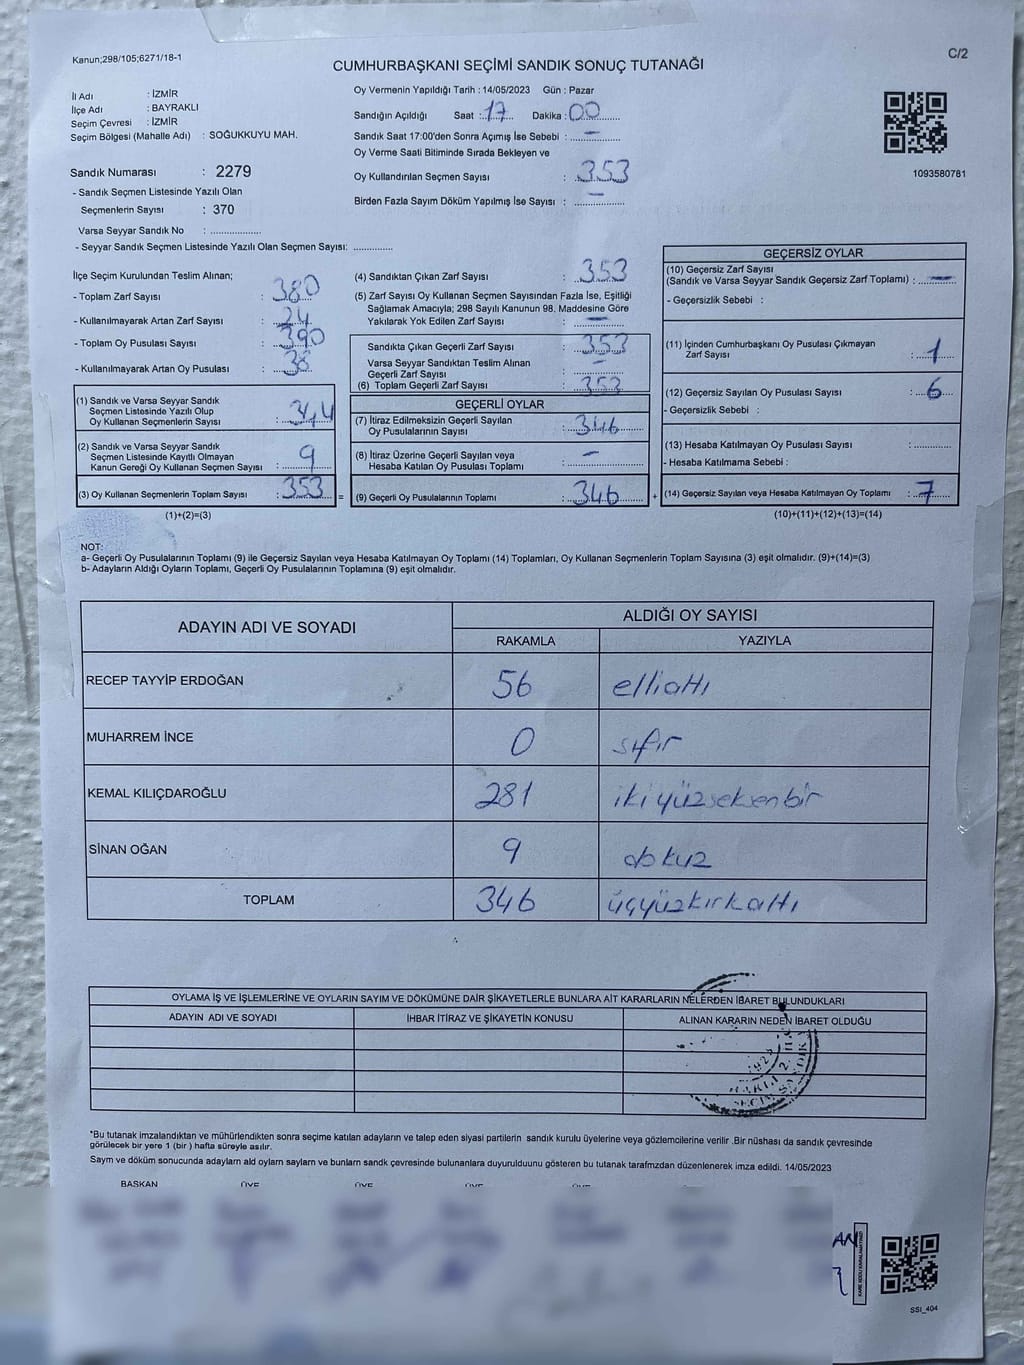 Kanun;298/105;6271/18-1
C/2
CUMHURBAŞKANI SEÇİMİ SANDIK SONUÇ TUTANAĞI
İl Adı : İZMİR
İlçe Adı : BAYRAKLI
Seçim Çevresi : İZMİR
Seçim Bölgesi (Mahalle Adı) : SOĞUKKUYU MAH.
Oy Vermenin Yapıldığı Tarih : 14/05/2023 Gün : Pazar
Sandığın Açıldığı Saat : 17 Dakika : 00
Sandık Saat 17:00'den Sonra Açımış İse Sebebi : —
Oy Verme Saati Bitiminde Sırada Bekleyen ve
Oy Kullandırılan Seçmen Sayısı : 353
Birden Fazla Sayım Döküm Yapılmış İse Sayısı : —
1093580781
Sandık Numarası : 2279
- Sandık Seçmen Listesinde Yazılı Olan
Seçmenlerin Sayısı : 370
Varsa Seyyar Sandık No :
- Seyyar Sandık Seçmen Listesinde Yazılı Olan Seçmen Sayısı:
İlçe Seçim Kurulundan Teslim Alınan;
- Toplam Zarf Sayısı : 380
- Kullanılmayarak Artan Zarf Sayısı : 24
- Toplam Oy Pusulası Sayısı : 390
- Kullanılmayarak Artan Oy Pusulası : 38
(1) Sandık ve Varsa Seyyar Sandık
Seçmen Listesinde Yazılı Olup
Oy Kullanan Seçmenlerin Sayısı : 344
(2) Sandık ve Varsa Seyyar Sandık
Seçmen Listesinde Kayıtlı Olmayan
Kanun Gereği Oy Kullanan Seçmen Sayısı : 9
(3) Oy Kullanan Seçmenlerin Toplam Sayısı : 353
(1)+(2)=(3)
(4) Sandıktan Çıkan Zarf Sayısı : 353
(5) Zarf Sayısı Oy Kullanan Seçmen Sayısından Fazla İse, Eşitliği
Sağlamak Amacıyla; 298 Sayılı Kanunun 98. Maddesine Göre
Yakılarak Yok Edilen Zarf Sayısı : —
Sandıkta Çıkan Geçerli Zarf Sayısı : 353
Varsa Seyyar Sandıktan Teslim Alınan
Geçerli Zarf Sayısı : —
(6) Toplam Geçerli Zarf Sayısı : 353
GEÇERLİ OYLAR
(7) İtiraz Edilmeksizin Geçerli Sayılan
Oy Pusulalarının Sayısı : 346
(8) İtiraz Üzerine Geçerli Sayılan veya
Hesaba Katılan Oy Pusulası Toplamı : —
= (9) Geçerli Oy Pusulalarının Toplamı : 346 +
GEÇERSİZ OYLAR
(10) Geçersiz Zarf Sayısı
(Sandık ve Varsa Seyyar Sandık Geçersiz Zarf Toplamı) : —
- Geçersizlik Sebebi :
(11) İçinden Cumhurbaşkanı Oy Pusulası Çıkmayan
Zarf Sayısı : 1
(12) Geçersiz Sayılan Oy Pusulası Sayısı : 6
- Geçersizlik Sebebi :
(13) Hesaba Katılmayan Oy Pusulası Sayısı :
- Hesaba Katılmama Sebebi :
(14) Geçersiz Sayılan veya Hesaba Katılmayan Oy Toplamı : 7
(10)+(11)+(12)+(13)=(14)
NOT:
a- Geçerli Oy Pusulalarının Toplamı (9) ile Geçersiz Sayılan veya Hesaba Katılmayan Oy Toplamı (14) Toplamları, Oy Kullanan Seçmenlerin Toplam Sayısına (3) eşit olmalıdır. (9)+(14)=(3)
b- Adayların Aldığı Oyların Toplamı, Geçerli Oy Pusulalarının Toplamına (9) eşit olmalıdır.
ADAYIN ADI VE SOYADI
ALDIĞI OY SAYISI
RAKAMLA YAZIYLA
RECEP TAYYİP ERDOĞAN 56 elliAltı
MUHARREM İNCE 0 sıfır
KEMAL KILIÇDAROĞLU 281 ikiyüzseksenbir
SİNAN OĞAN 9 dokuz
TOPLAM 346 üçyüzkırkaltı
OYLAMA İŞ VE İŞLEMLERİNE VE OYLARIN SAYIM VE DÖKÜMÜNE DAİR ŞİKAYETLERLE BUNLARA AİT KARARLARIN NELERDEN İBARET BULUNDUKLARI
ADAYIN ADI VE SOYADI
İHBAR İTİRAZ VE ŞİKAYETİN KONUSU
ALINAN KARARIN NEDEN İBARET OLDUĞU
*Bu tutanak imzalandıktan ve mühürlendikten sonra seçime katılan adayların ve talep eden siyasi partilerin sandık kurulu üyelerine veya gözlemcilerine verilir .Bir nüshası da sandık çevresinde
görülecek bir yere 1 (bir ) hafta süreyle asılır.
Saym ve döküm sonucunda adaylarn ald oylarn saylarn ve bunlarn sandk çevresinde bulunanlara duyurulduunu gösteren bu tutanak tarafmzdan düzenlenerek imza edildi. 14/05/2023
BAŞKAN ÜYE ÜYE ÜYE ÜYE
AN
SSI_404